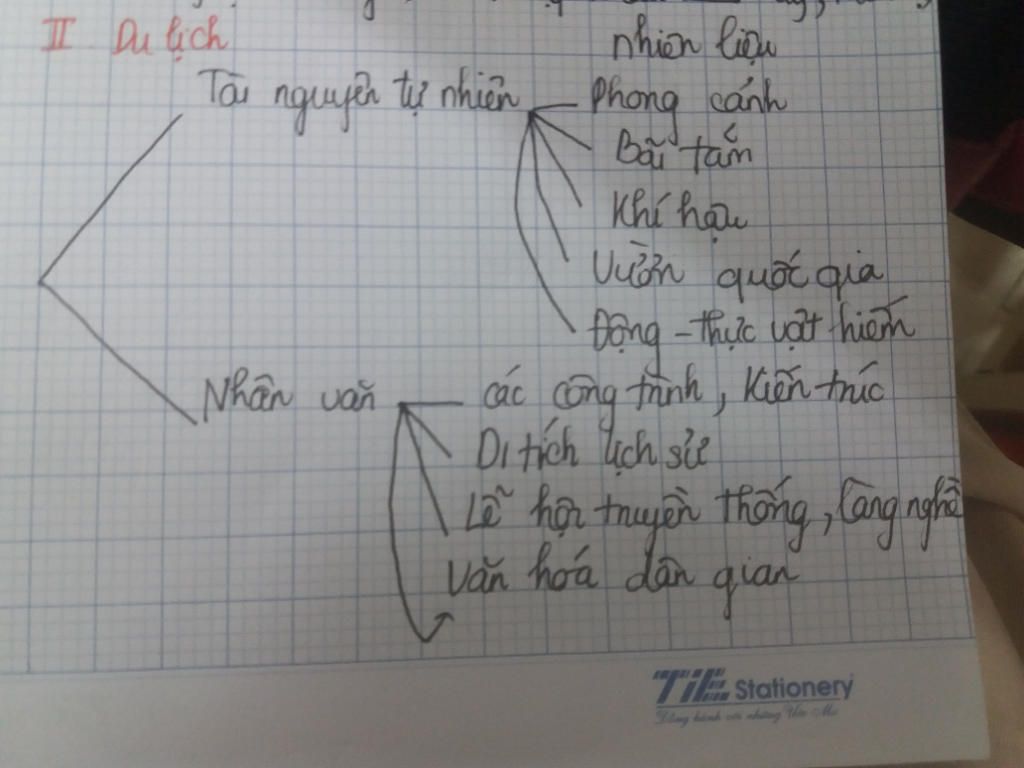 II Du lịch
nhiên liệu
Tài nguyên tự nhiên
Phong cảnh
Bãi tắm
Khí hậu
Vườn quốc gia
Động - thực vật hiếm
Nhân văn
các công trình, kiến trúc
Di tích lịch sử
Lễ hội truyền thống, làng nghề
Văn hoá dân gian
TiE Stationery
Đồng hành với những Ước Mơ